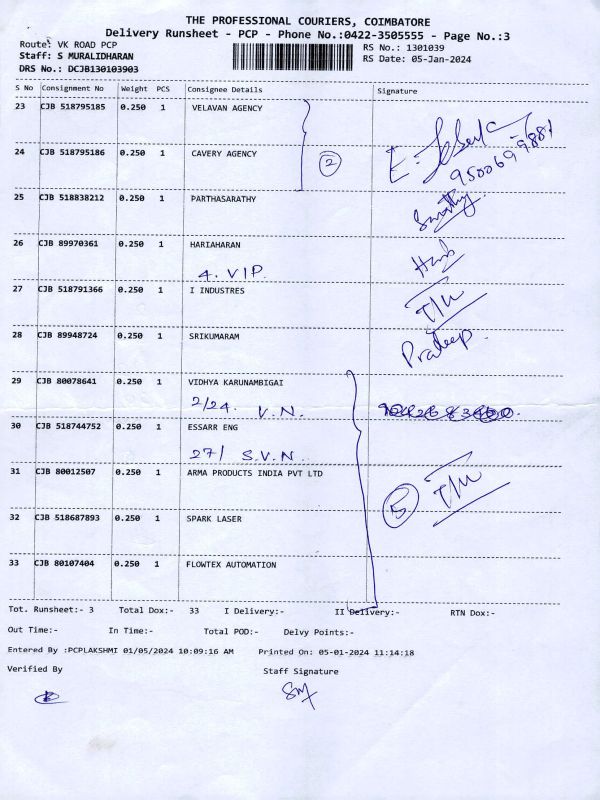 THE PROFESSIONAL COURIERS, COIMBATORE
Delivery Runsheet - PCP - Phone No.:0422-3505555 - Page No.:3
Route: VK ROAD PCP
RS No.: 1301039
Staff: S MURALIDHARAN
RS Date: 05-Jan-2024
DRS No.: DCJB130103903
S No Consignment No Weight PCS Consignee Details Signature
23 CJB 518795185 0.250 1 VELAVAN AGENCY
24 CJB 518795186 0.250 1 CAVERY AGENCY
2
9500699881
25 CJB 518838212 0.250 1 PARTHASARATHY
26 CJB 89970361 0.250 1 HARIAHARAN
4. VIP.
27 CJB 518791366 0.250 1 I INDUSTRES
28 CJB 89948724 0.250 1 SRIKUMARAM Pradeep.
29 CJB 80078641 0.250 1 VIDHYA KARUNAMBIGAI
2/24. V.N.
30 CJB 518744752 0.250 1 ESSARR ENG
27/ S.V.N.
31 CJB 80012507 0.250 1 ARMA PRODUCTS INDIA PVT LTD
5
32 CJB 518687893 0.250 1 SPARK LASER
33 CJB 80107404 0.250 1 FLOWTEX AUTOMATION
Tot. Runsheet:- 3 Total Dox:- 33 I Delivery:- II Delivery:- RTN Dox:-
Out Time:- In Time:- Total POD:- Delvy Points:-
Entered By :PCPLAKSHMI 01/05/2024 10:09:16 AM Printed On: 05-01-2024 11:14:18
Verified By Staff Signature